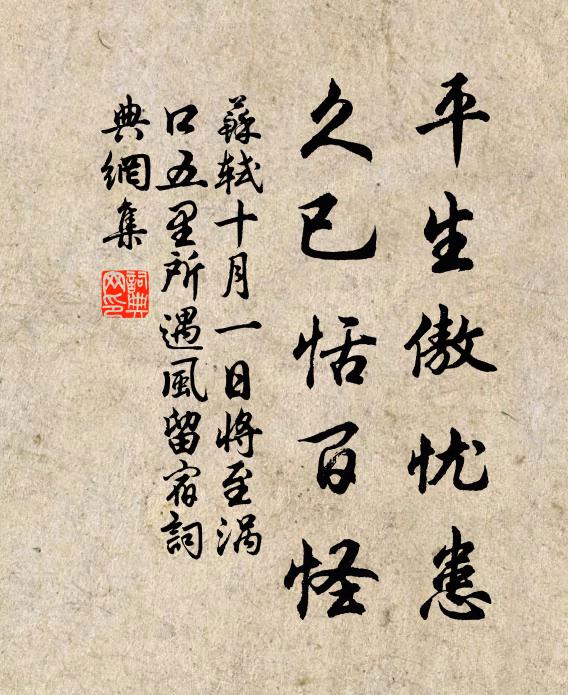 平生傲忧患
久已恬百怪
蘇軾十月一日将至涡
口五里所遇風留宿詞
典網集
詞典网印